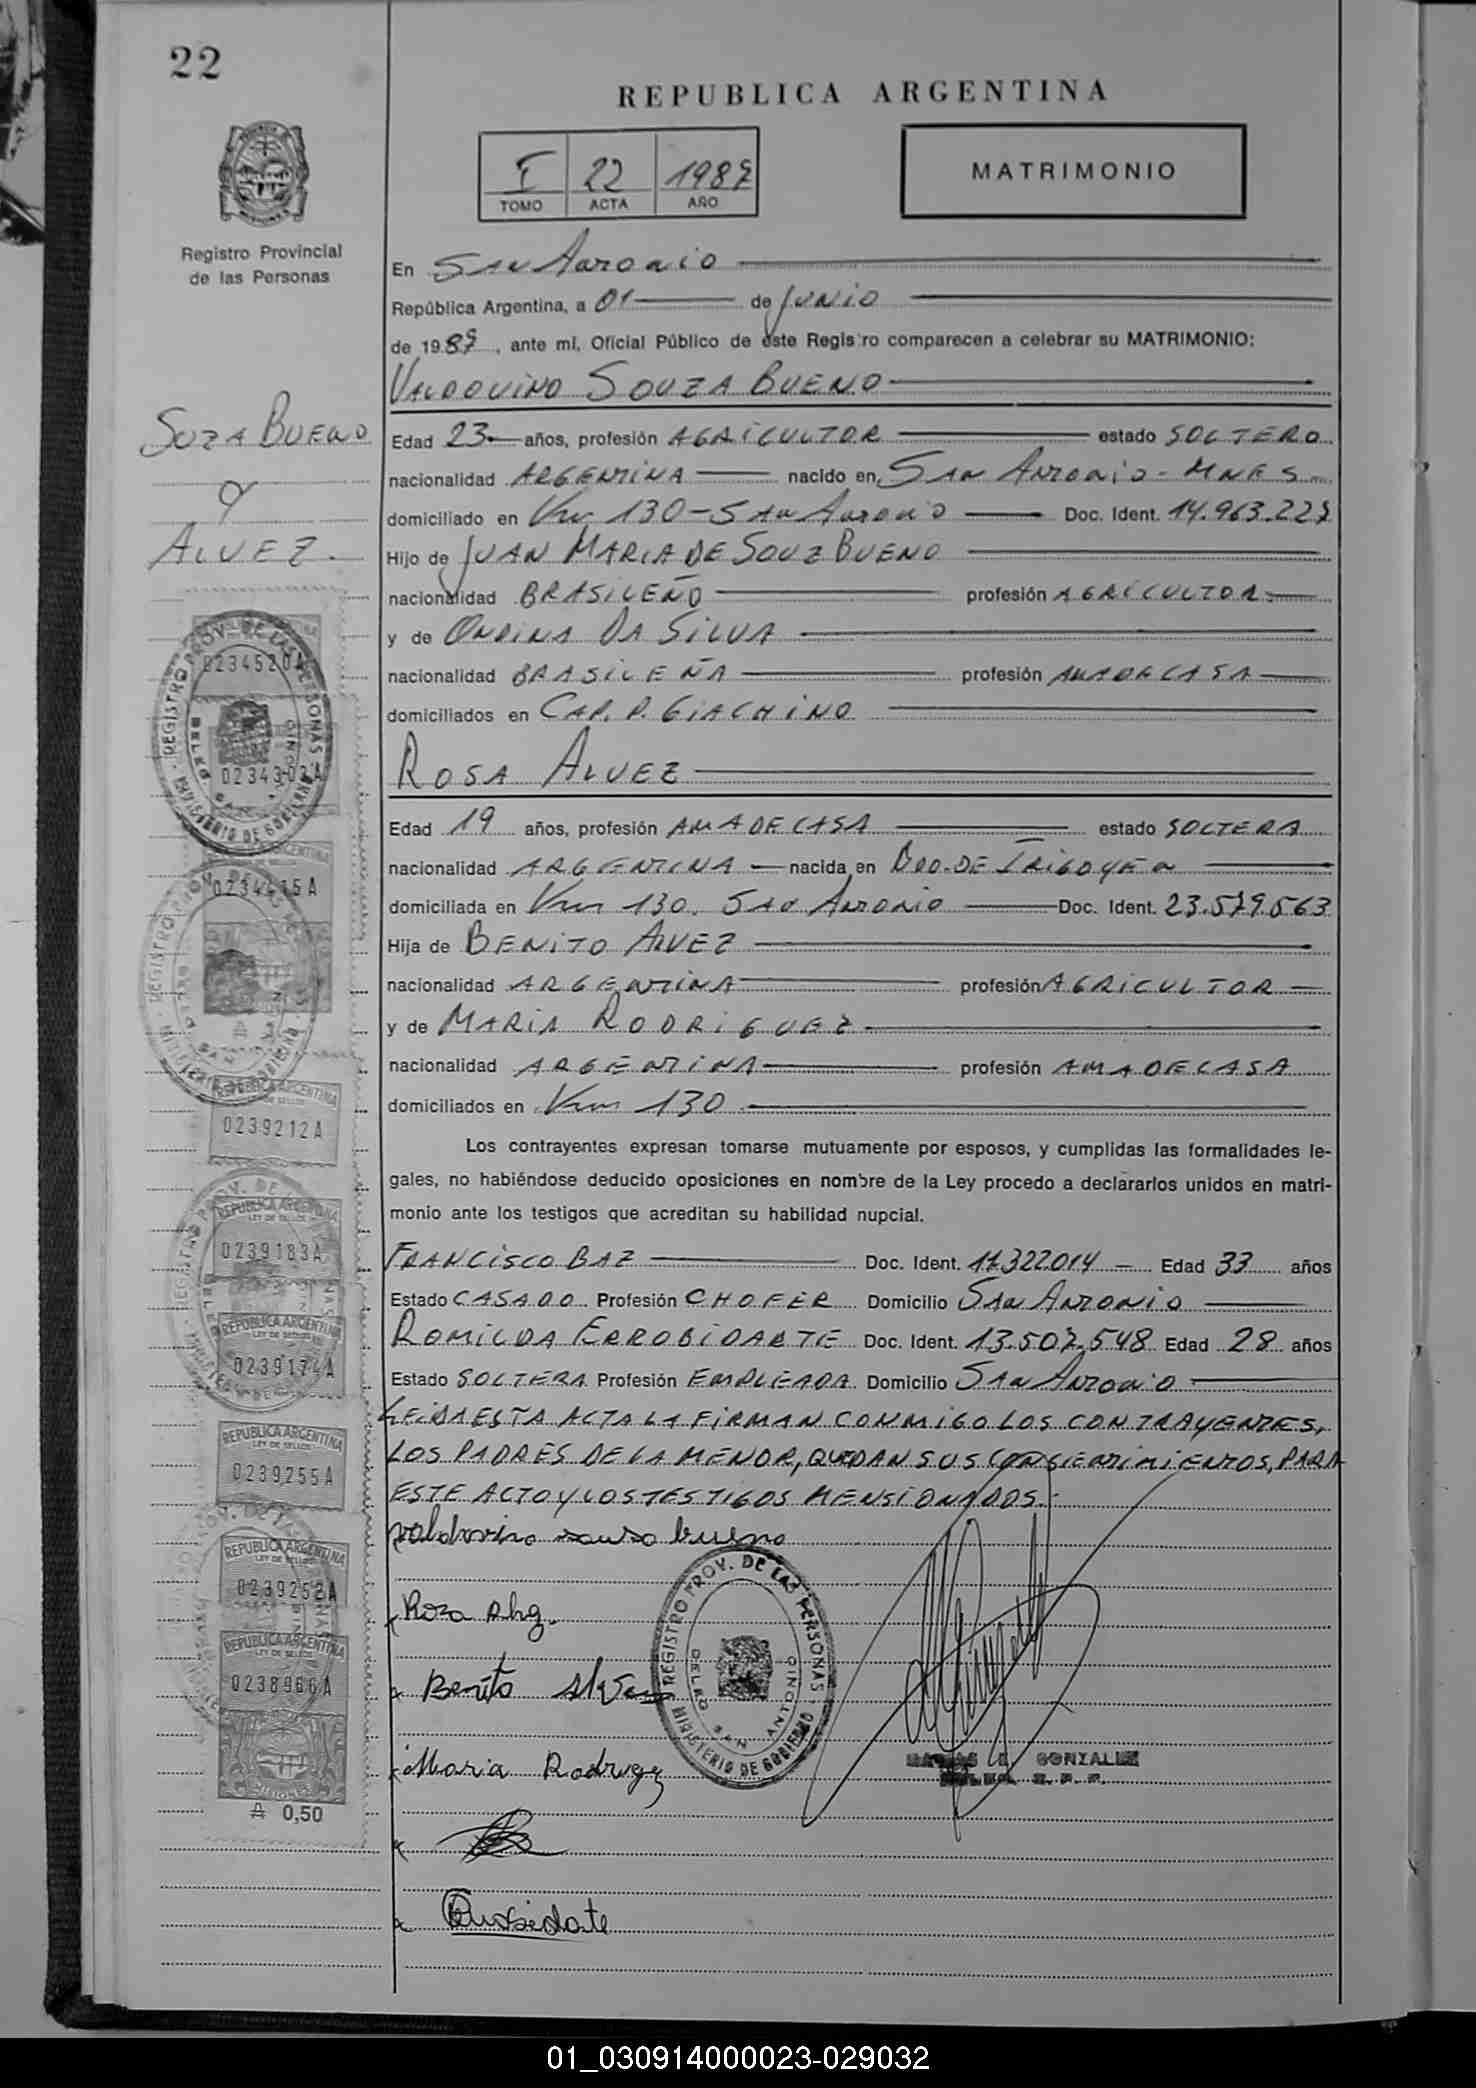 22
REPUBLICA ARGENTINA
I 22
TOMO ACTA AÑO
MATRIMONIO
Registro Provincial
de las Personas
En San Antonio
República Argentina, a 01 de Junio
de 19 , ante mí, Oficial Público de este Registro comparecen a celebrar su MATRIMONIO:
VALDOVINO SOUZA BUENO
SOZA BUENO
Y
ALVEZ.
Edad 23 años, profesión AGRICULTOR estado SOLTERO
nacionalidad ARGENTINA nacido en SAN ANTONIO - MNES
domiciliado en Km 130 - San Antonio Doc. Ident. 14.963.227
Hijo de JUAN MARIA DE SOUZ BUENO
nacionalidad BRASILEÑO profesión AGRICULTOR
y de ONDINA DA SILVA
nacionalidad BRASILEÑA profesión AMA DE CASA
domiciliados en CAP. P. GIACHINO
ROSA ALVEZ
Edad 19 años, profesión AMA DE CASA estado SOLTERA
nacionalidad ARGENTINA nacida en BDO. DE IRIGOYEN
domiciliada en Km 130. SAN ANTONIO Doc. Ident. 23.579.563
Hija de BENITO ALVEZ
nacionalidad ARGENTINA profesión AGRICULTOR
y de MARIA RODRIGUEZ
nacionalidad ARGENTINA profesión AMA DE CASA
domiciliados en Km 130
Los contrayentes expresan tomarse mutuamente por esposos, y cumplidas las formalidades le-
gales, no habiéndose deducido oposiciones en nombre de la Ley procedo a declararlos unidos en matri-
monio ante los testigos que acreditan su habilidad nupcial.
FRANCISCO BAZ Doc. Ident. 17.322.014 Edad 33 años
Estado CASADO Profesión CHOFER Domicilio SAN ANTONIO
ROMILDA ERROBIDARTE Doc. Ident. 13.507.548 Edad 28 años
Estado SOLTERA Profesión EMPLEADA Domicilio SAN ANTONIO
LEIDA ESTA ACTA LA FIRMAN CONMIGO LOS CONTRAYENTES,
LOS PADRES DE LA MENOR, QUEDAN SUS PARA
ESTE ACTO Y LOS TESTIGOS MENSIONADOS.
valdovino souza bueno
Roza
Benito Alvez
Maria Rodrugez
REGISTRO PROV. DE LAS PERSONAS
MINISTERIO DE GOBIERNO
DELEG. SAN ANTONIO
GONZALEZ
0234520A
0234303A
0234415A
REPUBLICA ARGENTINA
0239212A
REPUBLICA ARGENTINA
LEY DE SELLOS
0239183A
REPUBLICA ARGENTINA
LEY DE SELLOS
0239174A
REPUBLICA ARGENTINA
LEY DE SELLOS
0239255A
REPUBLICA ARGENTINA
LEY DE SELLOS
0239252A
REPUBLICA ARGENTINA
LEY DE SELLOS
0238966A
MISIONES
₳ 0,50
01_030914000023-029032